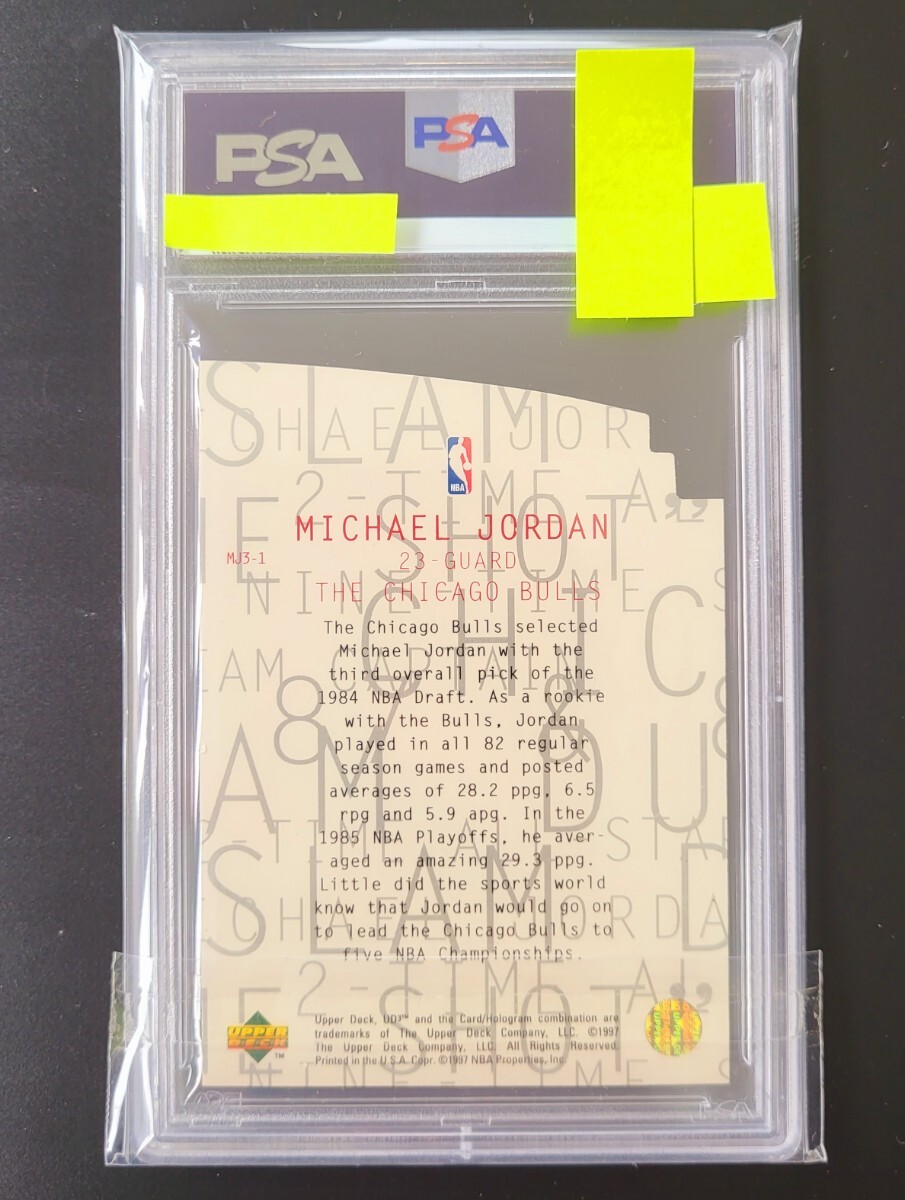 PSA
PSA
SLAM
CHAEL JOR
NBA
2-TIME A
HE SHOT
MICHAEL JORDAN
MJ3-1
23-GUARD
NINE-TIME S
THE CHICAGO BULLS
CHIC
The Chicago Bulls selected
Michael Jordan with the
EAM CAPTAIN
third overall pick of the
1984 NBA Draft. As a rookie
with the Bulls, Jordan
played in all 82 regular
season games and posted
averages of 28.2 ppg, 6.5
rpg and 5.9 apg. In the
1985 NBA Playoffs, he aver-
aged an amazing 29.3 ppg.
Little did the sports world
know that Jordan would go on
to lead the Chicago Bulls to
five NBA Championships.
AM DU
2-TIME A STAR
SLAM D
CHAEL JORDA
2-TIME AL
NINE-TIME
UPPER
DECK
TM
Upper Deck, UD3™ and the Card/Hologram combination are
trademarks of The Upper Deck Company, LLC. ©1997
The Upper Deck Company, LLC. All Rights Reserved.
Printed in the U.S.A. Copr. ©1997 NBA Properties, Inc.
PSA
PSA